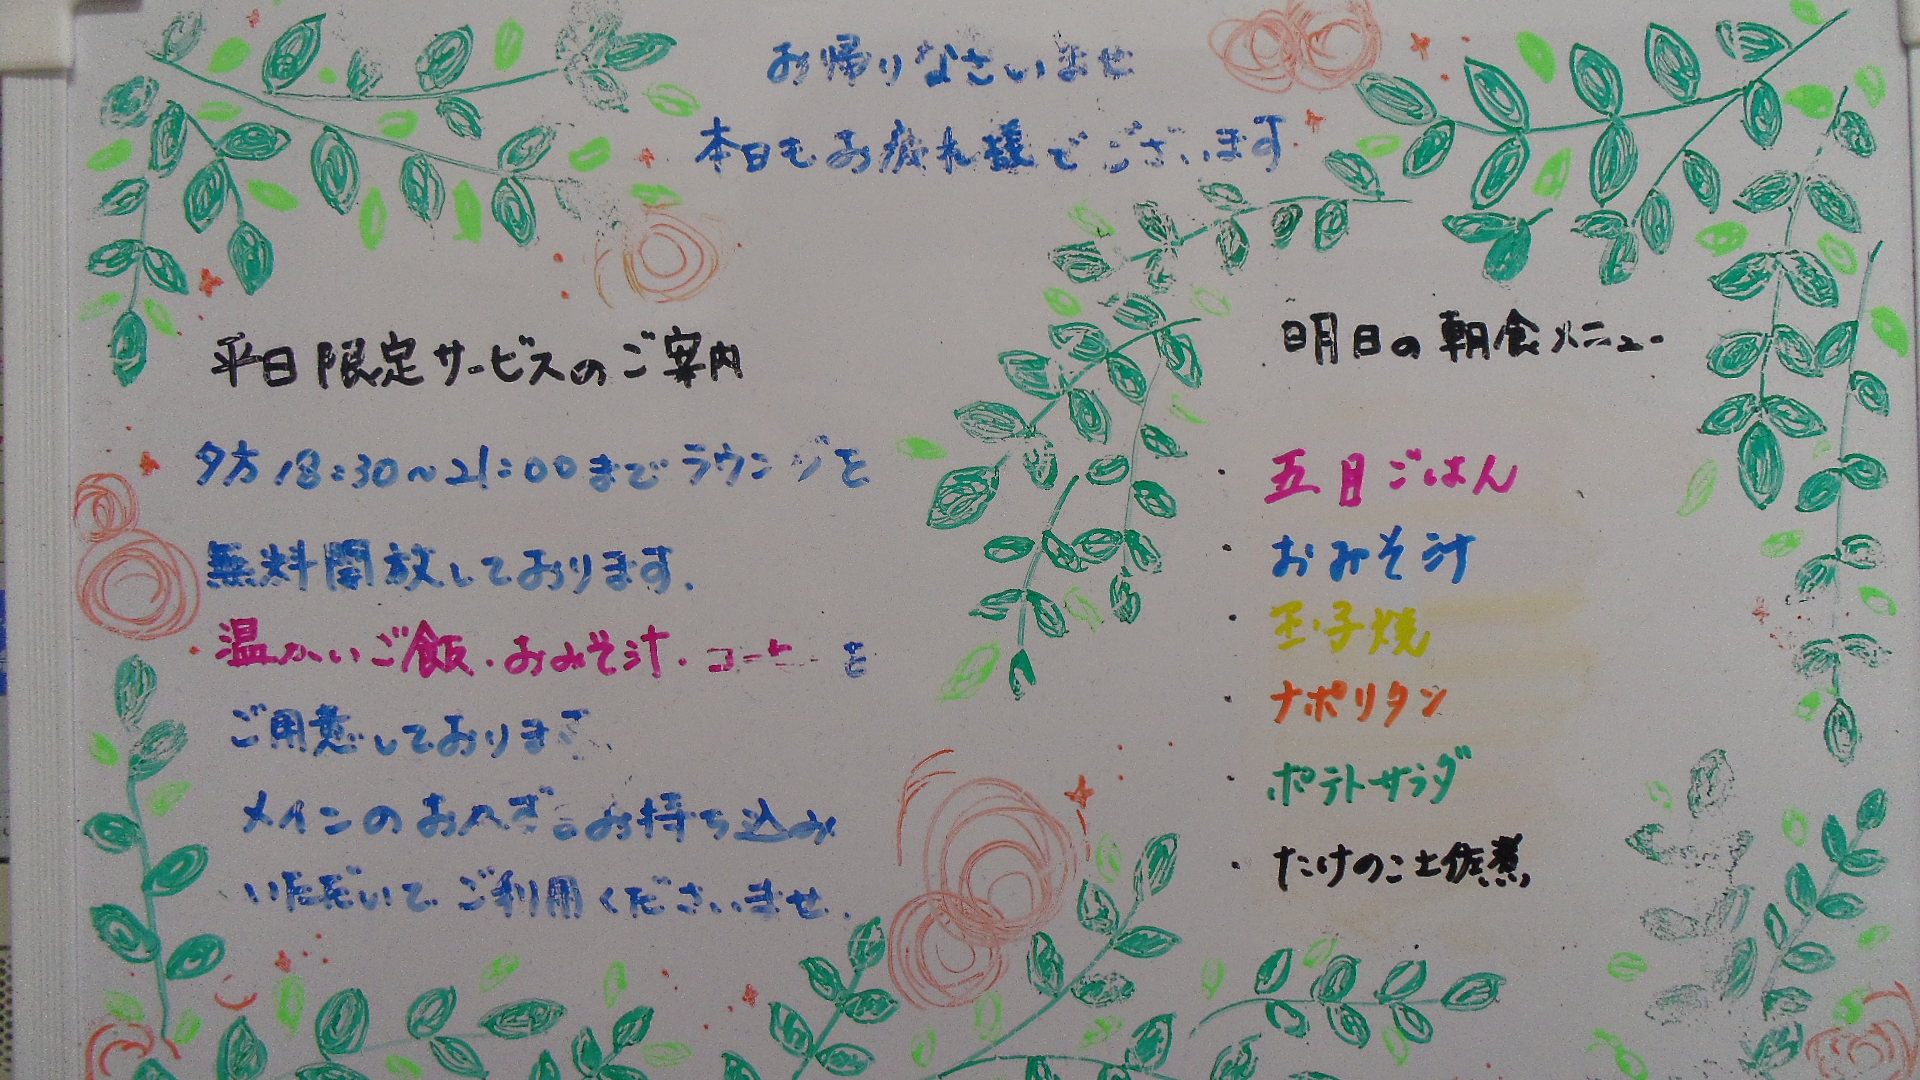 お帰りなさいませ
本日もお疲れ様でございます
平日限定サービスのご案内
夕方18:30~21:00までラウンジを
無料開放しております.
温かいご飯・おみそ汁・コーヒーを
ご用意しております.
メインのおかずをお持ち込み
いただいてご利用くださいませ.
明日の朝食メニュー
・五目ごはん
・おみそ汁
・玉子焼
・ナポリタン
・ポテトサラダ
・たけのこ土佐煮